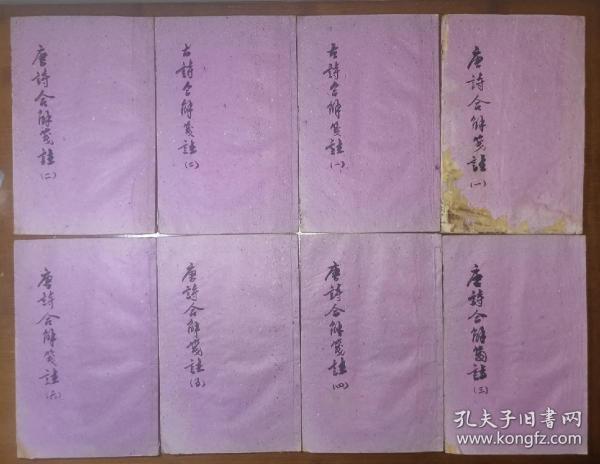 唐詩合解箋註(二)
古詩合解箋註(二)
古詩合解箋註(一)
唐詩合解箋註(一)
唐詩合解箋註(六)
唐詩合解箋註(五)
唐詩合解箋註(四)
唐詩合解箋註(三)
孔夫子旧书网
www.kongfz.com